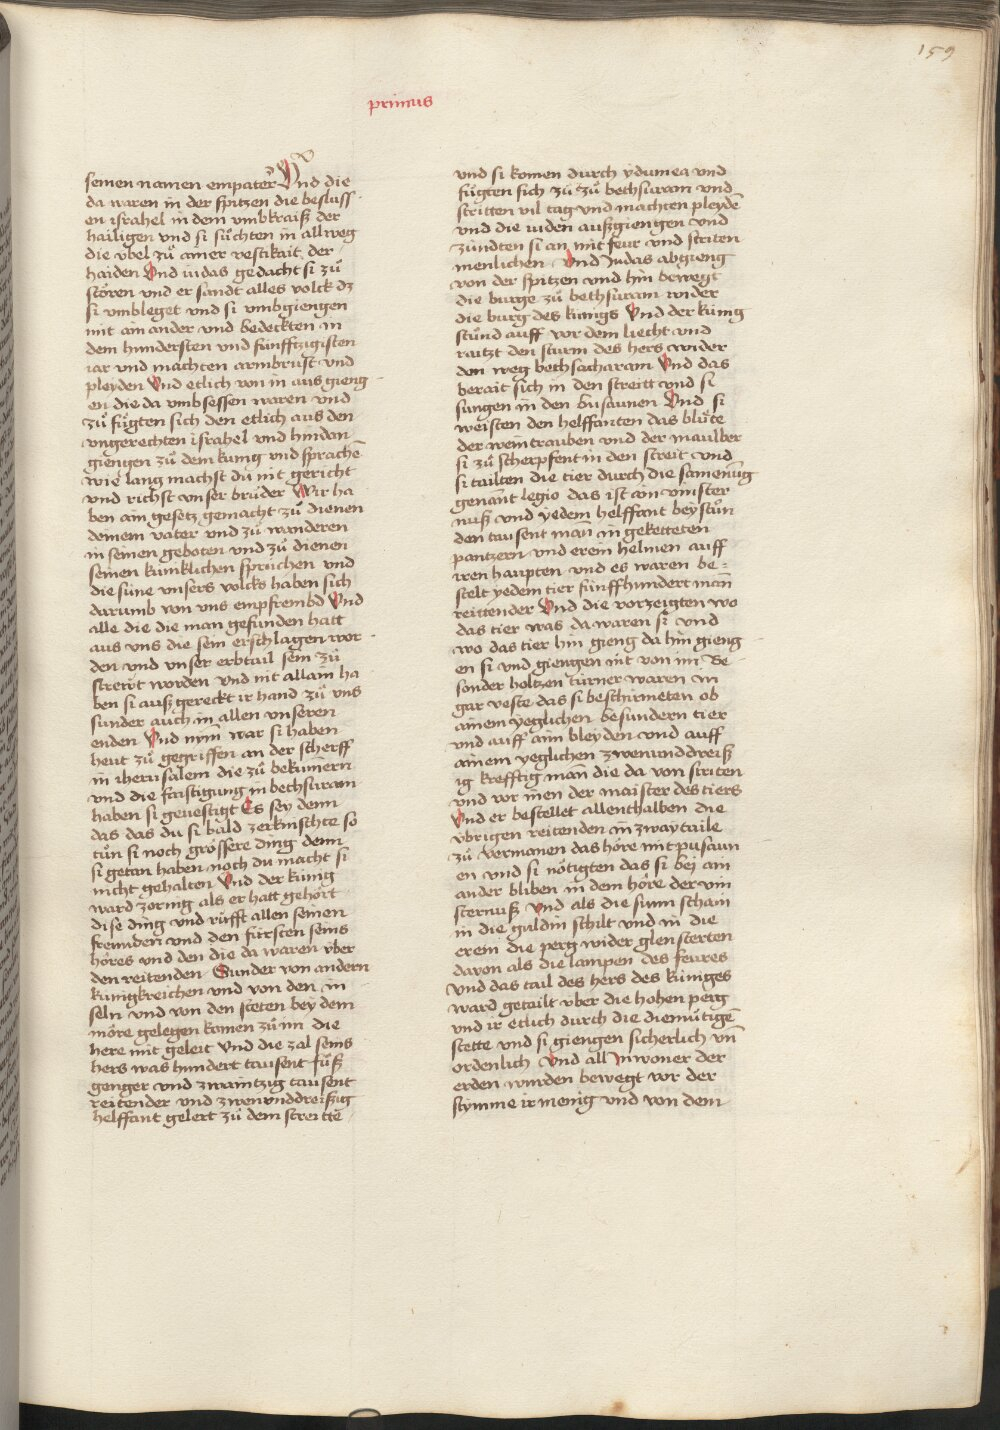 159
primus
seinen namen empater Vnd die
da waren in der spitzen die besluss
en israhel in dem vmbkraiß der
hailigen vnd si sůchten in allweg
die vbel zů ainer vestikait der
haiden Vnd iudas gedacht si zů
stören vnd er sandt alles volck dz
si vmbleget vnd si vmbgiengen
mit ain ander vnd bedeckten in
dem hundersten vnd funfftzigisten
iar vnd machten armbrust vnd
pleyden Vnd etlich von in aus gieng
en die da vmbsessen waren vnd
zů fůgten sich den etlich aus den
vngerechten israhel vnd hindan
giengen zů dem kunig vnd sprachē
wie lang machst du nit gericht
vnd richst vnser brüder Wir ha
ben ain gesetz gemacht zů dienen
deinem vater vnd zů wanderen
in seinen geboten vnd zů dienen
seinen kuniklichen sprüchen vnd
die süne vnsers volcks haben sich
darumb von vns empfrembd Vnd
alle die die man gefunden hatt
aus vns die sein erschlagen wor
den vnd vnser erbtail sein zů
streut worden vnd nit allain ha
ben si auß gereckt ir hand zů vns
sunder auch in allen vnseren
enden Vnd nym̄ war si haben
heut zů gegriffen an der scherff
in iherusalem die zů bekumern
vnd die fastigung in bechsuram
haben si geuestigt Es sey denn
das das du si bald zerknischte so
tůn si noch grössere ding denn
si getan haben noch du macht si
nicht gehalten Vnd der künig
ward zornig als er hatt gehört
dise ding vnd růfft allen seinen
freunden vnd den fürsten seins
höres vnd den die da waren vber
den reitenden Sunder von andern
kunigkreichen vnd von den in
seln vnd von den steten bey dem
möre gelegen komen zů im die
here mit geleit Vnd die zal seins
hers was hundert tausent fůß
genger vnd zwaintzig tausent
reitender vnd zwenvnddreißig
helffant gelert zů dem streitte
vnd si komen durch ydumea vnd
fügten sich zů zů bechsuram vnd
stritten vil tag vnd machten pleydē
vnd die iuden außgiengen vnd
zündten si an mit feur vnd striten
menlichen Vnd Judas abgieng
von der spitzen vnd hin bewegt
die burge zů bethsuram wider
die burg des kunigs Vnd der kunig
stůnd auff vor dem liecht vnd
raitzt den sturm des hers wider
den weg bechsacharam Vnd das
berait sich in den streitt vnd si
sungen in den busaunen Vnd si
weisten den helffanten das blůte
der weintrauben vnd der maulber
si zů scherpfent in den streit vnd
si tailten die tier durch die samenūg
genant legio das ist ain vinster
nuß vnd yedem helffant bey stůn
den tausent man̄ in geketteten
pantzern vnd erein helmen auff
iren haupten vnd es waren be=
stelt yedem tier fünffhundert man̄
reittender Vnd die vorzeigten wo
das tier was da waren si vnd
wo das tier hin gieng da hin gieng
en si vnd giengen nit von im Be
sonder holtzen türner waren in
gar veste das si beschirmeten ob
ainem yeglichen besundern tier
vnd auff ainn bleyden vnd auff
ainem yeglichen zwenunddreiß
ig krefftig man̄ die da von striten
vnd vor inen der maister des tiers
Vnd er bestellet allenthalben die
vbrigen reitenden in zway taile
zů vermanen das höre mit pusaun
en vnd si nötigten das si bey ain
ander bliben in dem höre der vin
sternuß Vnd als die sunn schain
in die guldin schilt vnd in die
erein die perg wider glensterten
dauon als die lampen des feures
Vnd das tail des hers des küniges
ward getailt vber die hohen perg
vnd ir etlich durch die diemůtigē
stette vnd si giengen sicherlich vn̄
ordenlich Vnd all Inwoner der
erden wurden bewegt vor der
stymme ir menig vnd von dem